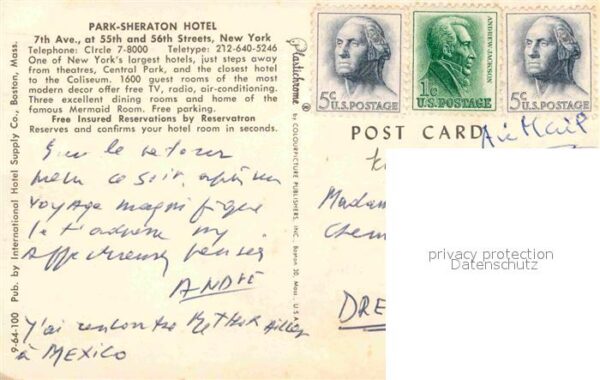 PARK-SHERATON HOTEL
7th Ave., at 55th and 56th Streets, New York
Telephone: CIrcle 7-8000 Teletype: 212-640-5246
One of New York's largest hotels, just steps away
from theatres, Central Park, and the closest hotel
to the Coliseum. 1600 guest rooms of the most
modern decor offer free TV, radio, air-conditioning.
Three excellent dining rooms and home of the
famous Mermaid Room. Free parking.
Free Insured Reservations by Reservatron
Reserves and confirms your hotel room in seconds.
9-64-100 Pub. by International Hotel Supply Co., Boston, Mass.
Plastichrome ® by COLOURPICTURE PUBLISHERS, INC., Boston 30, Mass. U.S.A.
5¢ U.S. POSTAGE
1¢ U.S. POSTAGE ANDREW JACKSON
5¢ U.S. POSTAGE
POST CARD
Air Mail
Sur le retour
ce soir, après un
voyage magnifique
je t'adresse my
affectueuses pensées
ANDRÉ
J'ai rencontré
à MEXICO
Madam
DRE
privacy protection
Datenschutz